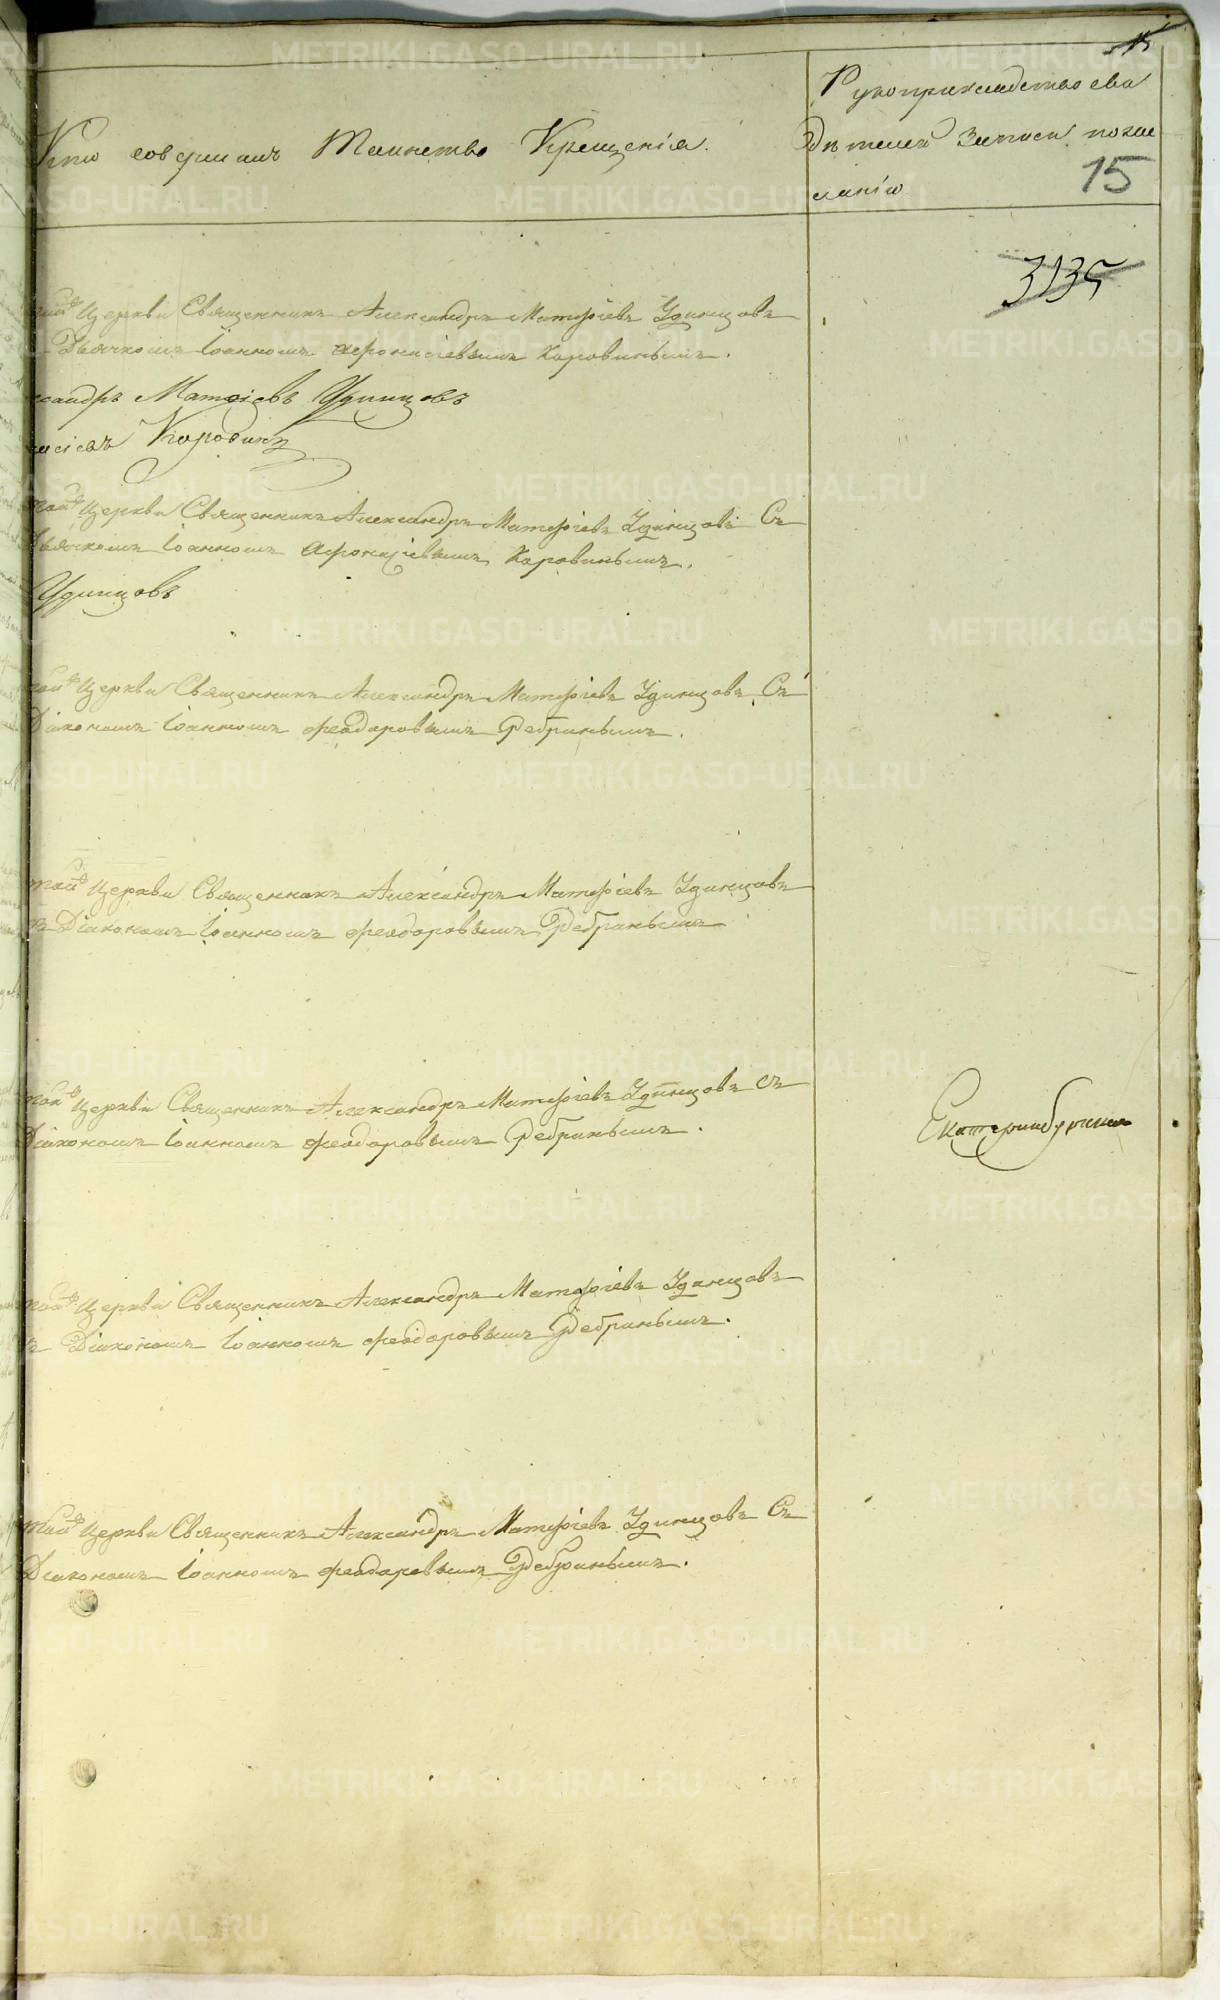 15
Кто совершалъ Таинство Крещенія.
Рукоприкладство сви
дѣтелей записи по же
ланію
15
3135
той Церкви Священникъ Александръ Матфіевъ Удинцовъ
Дьячкомъ Іоанномъ Афонасіевымъ Коровинымъ.
ксандръ Матѳіевъ Удинцовъ
насіевъ Коровинъ
той Церкви Священникъ Александръ Матфіевъ Удинцовъ Съ
Дьячкомъ Іоанномъ Афонасіевымъ Коровинымъ.
Удинцовъ
той Церкви Священникъ Александръ Матфіевъ Удинцовъ Съ
Діакономъ Іоанномъ Феодоровымъ Ребринымъ.
той Церкви Священникъ Александръ Матфіевъ Удинцовъ
съ Діакономъ Іоанномъ Феодоровымъ Ребринымъ
той Церкви Священникъ Александръ Матфіевъ Удинцовъ съ
Діакономъ Іоанномъ Феодоровымъ Ребринымъ.
Екатеринбургския
той Церкви Священникъ Александръ Матфіевъ Удинцовъ
съ Діакономъ Іоанномъ Феодоровымъ Ребринымъ.
той Церкви Священникъ Александръ Матфіевъ Удинцовъ Съ
Діакономъ Іоанномъ Феодоровымъ Ребринымъ.
METRIKI.GASO-URAL.RU